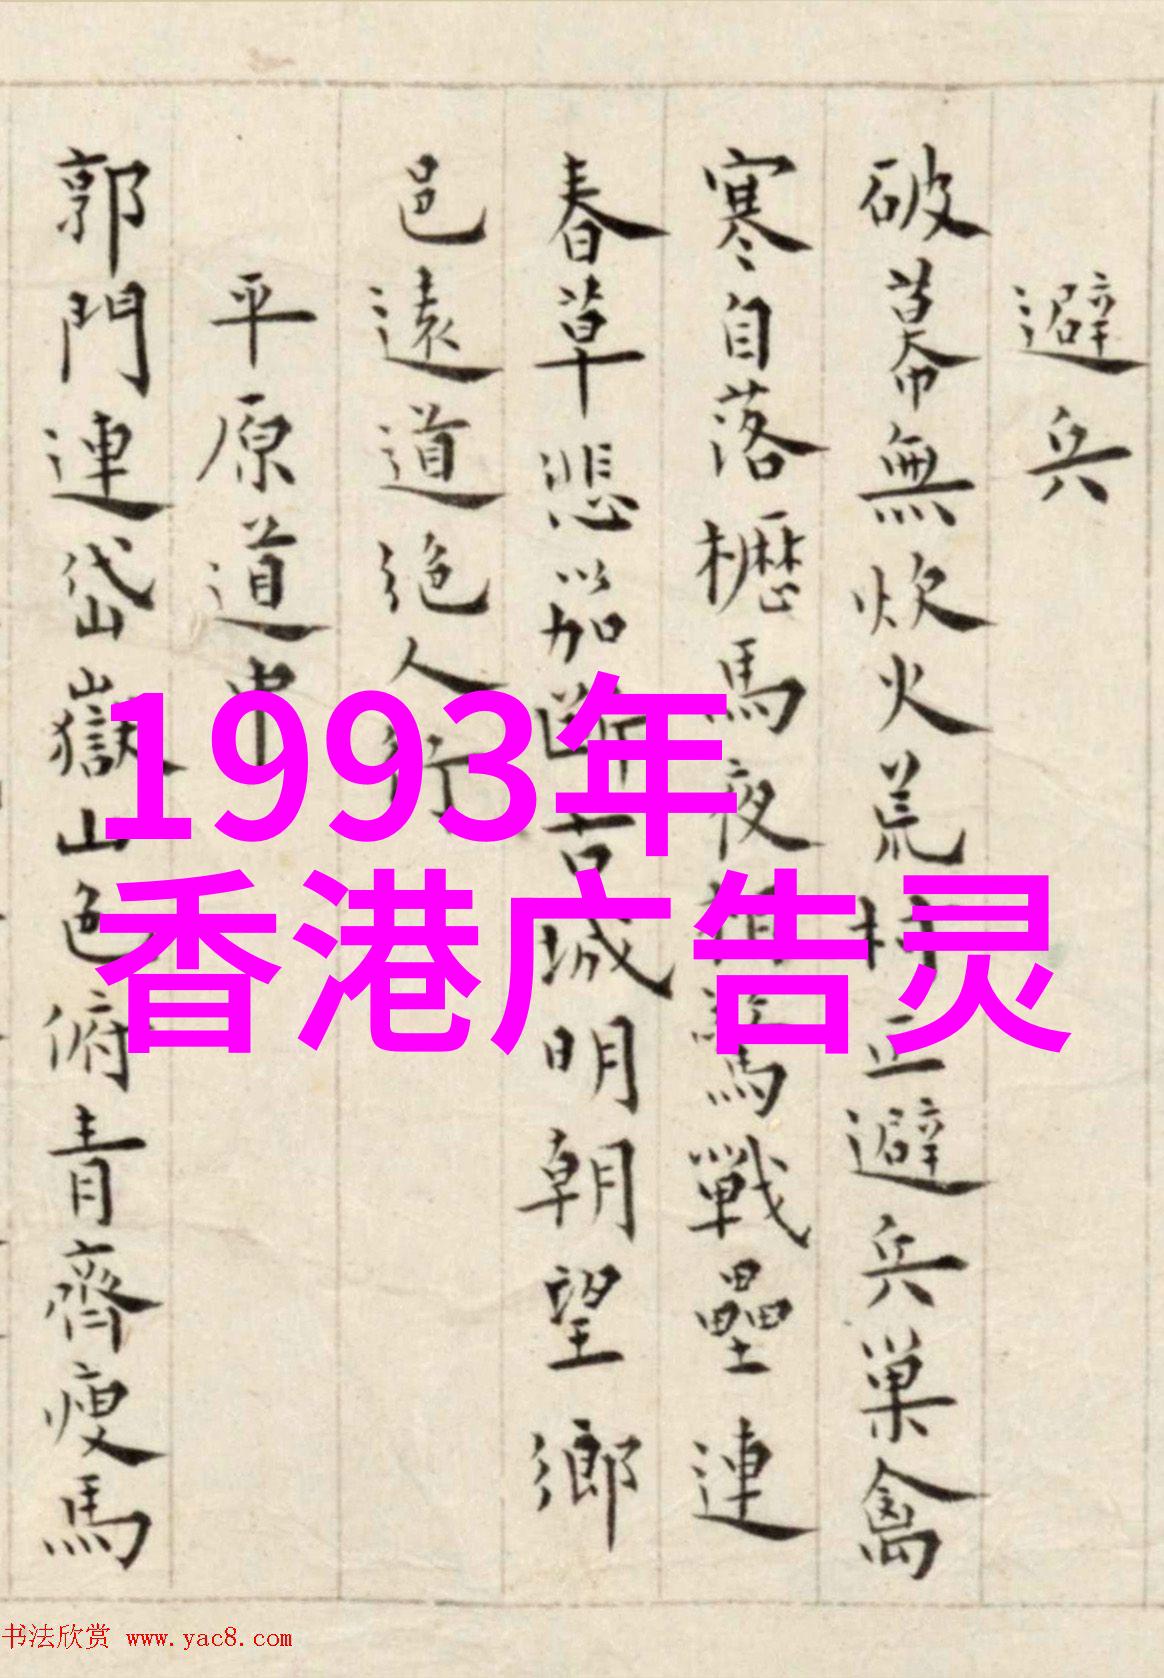 避兵
破幕無炊火荒村正避兵巢禽
寒自落櫪馬夜相驚戰壘連
春草悲笳斷古城明朝望鄉
邑遠道絕人行
平原道中
郭門連岱嶽山色俯青齊瘦馬
1993年
香港广告灵
书法欣赏 www.yac8.com